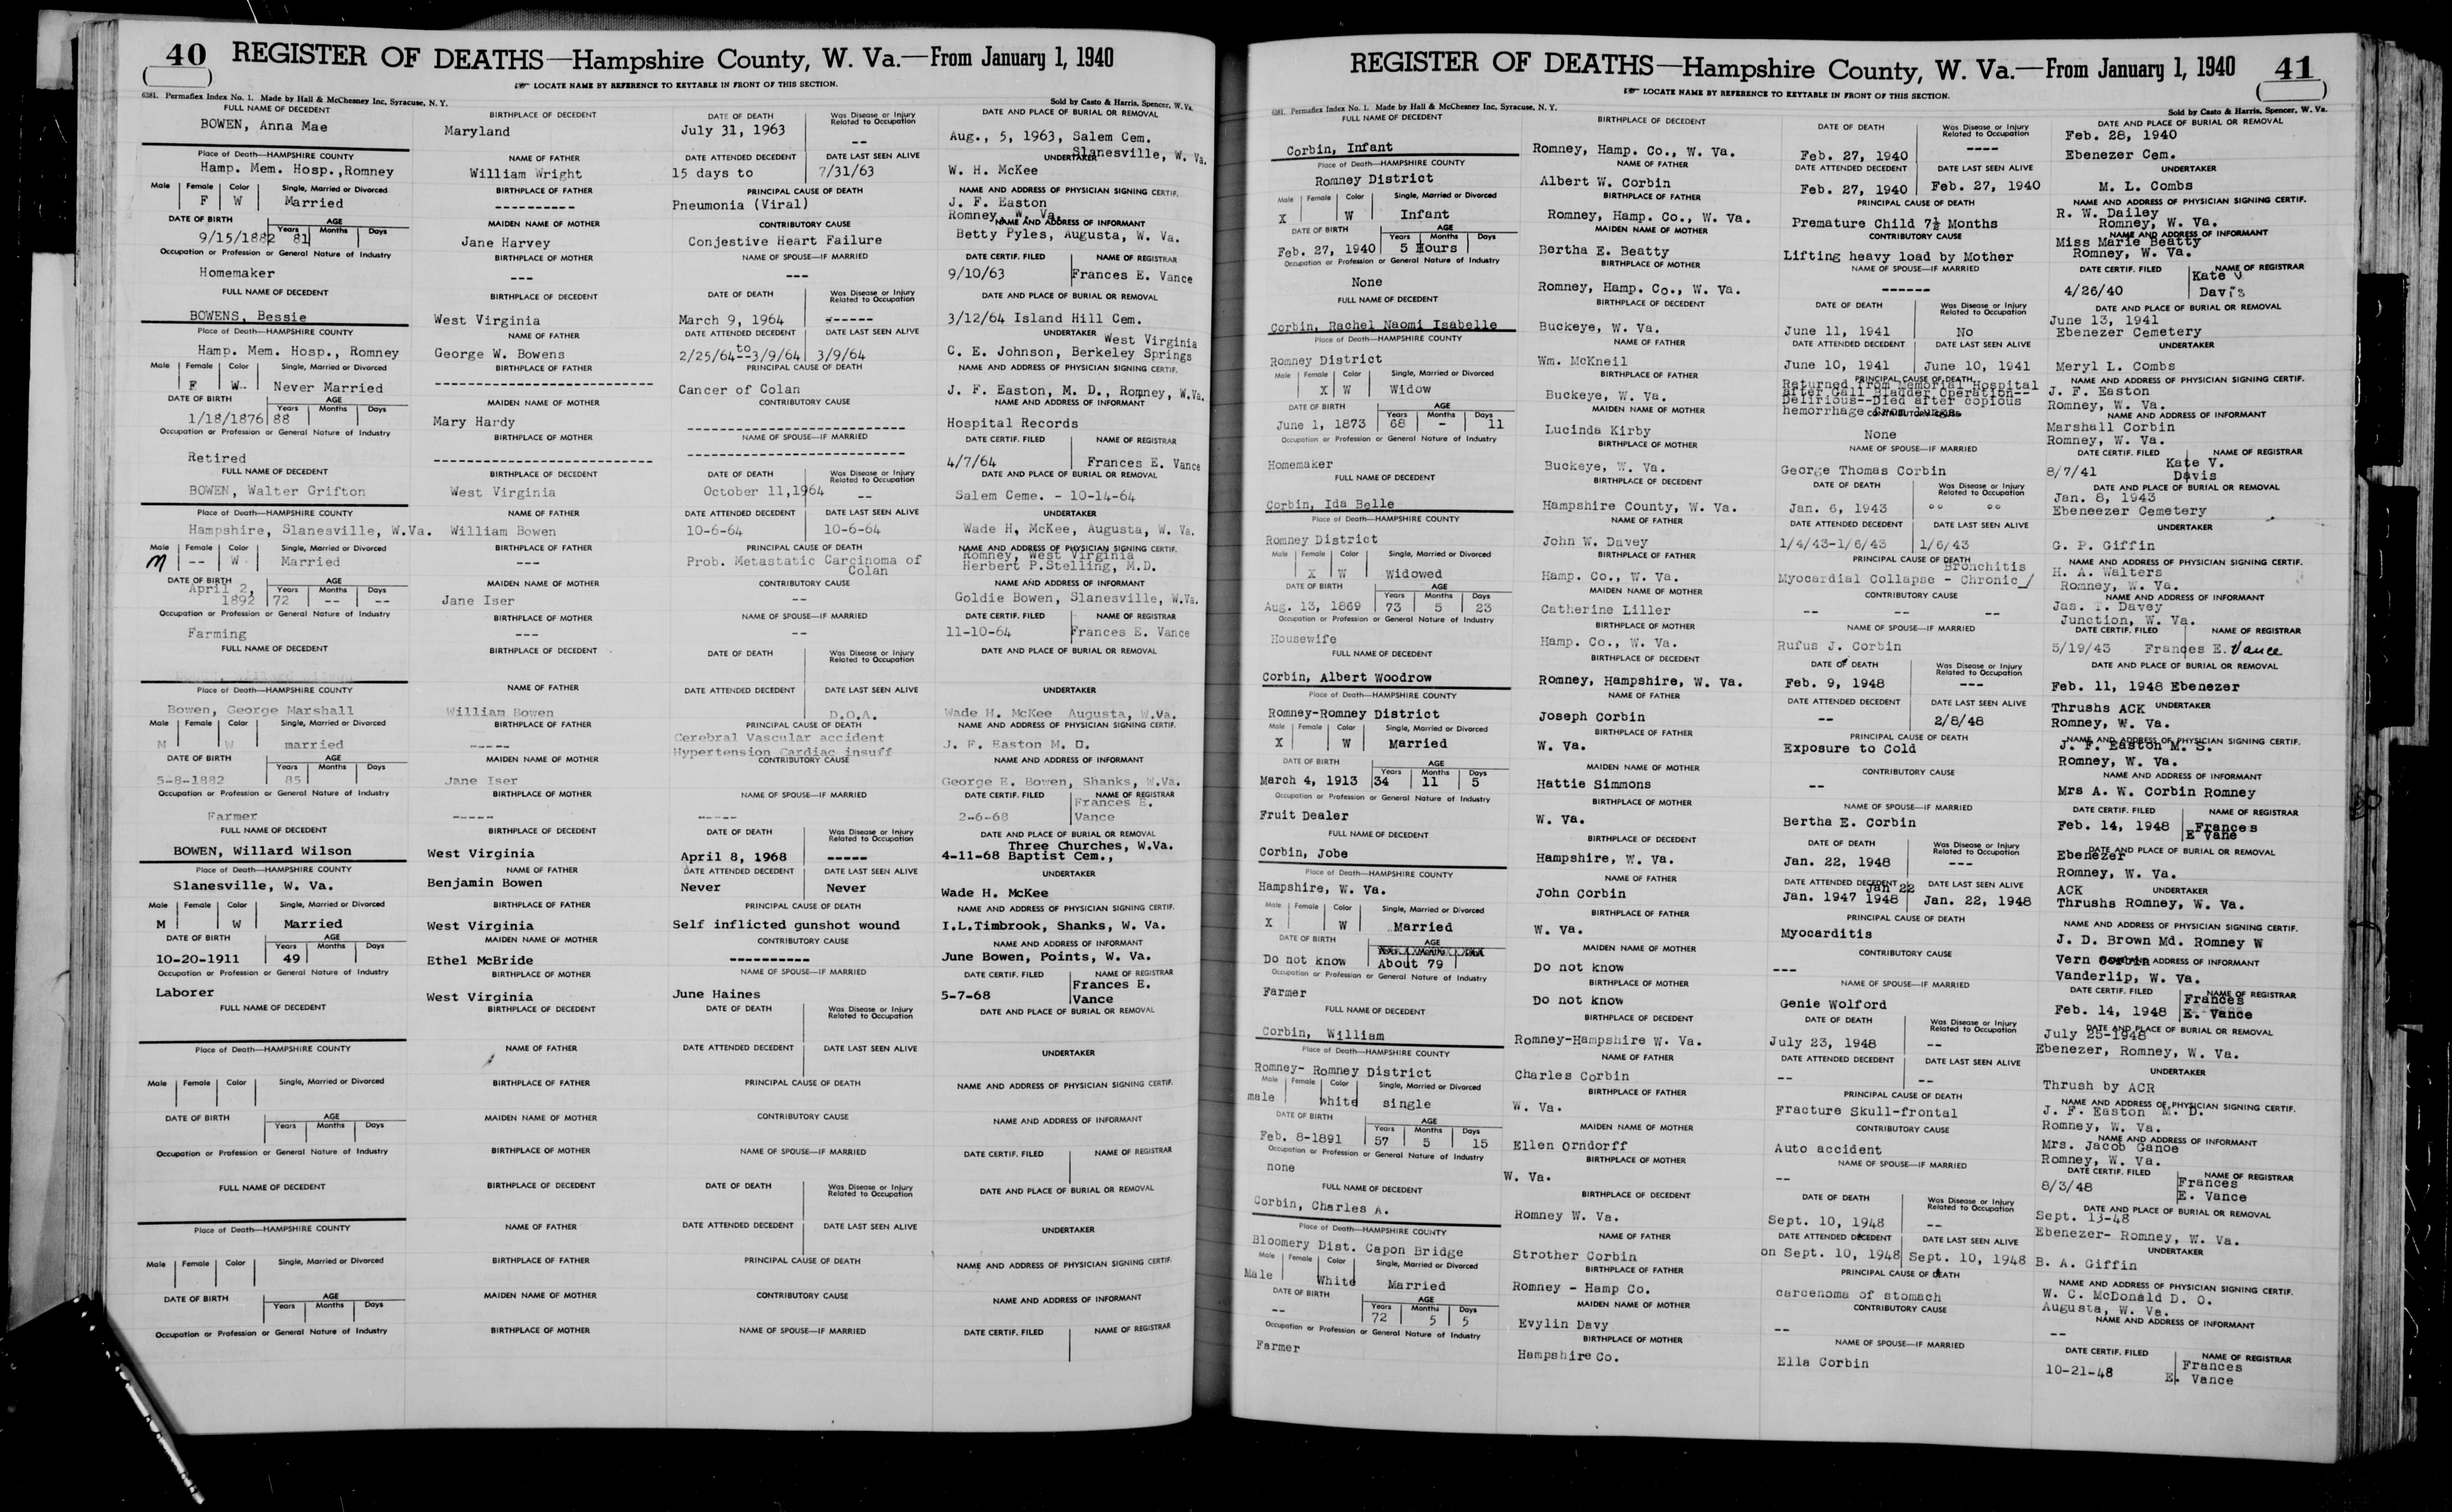 40 REGISTER OF DEATHS—Hampshire County, W. Va.—From January 1, 1940
☞ LOCATE NAME BY REFERENCE TO KEYTABLE IN FRONT OF THIS SECTION.
6381. Permaflex Index No. 1. Made by Hall & McChesney Inc, Syracuse, N. Y. Sold by Casto & Harris, Spencer, W. Va.
FULL NAME OF DECEDENT BIRTHPLACE OF DECEDENT DATE OF DEATH Was Disease or Injury Related to Occupation DATE AND PLACE OF BURIAL OR REMOVAL
BOWEN, Anna Mae Maryland July 31, 1963 -- Aug., 5, 1963, Salem Cem. Slanesville, W. Va.
Place of Death—HAMPSHIRE COUNTY NAME OF FATHER DATE ATTENDED DECEDENT DATE LAST SEEN ALIVE UNDERTAKER
Hamp. Mem. Hosp.,Romney William Wright 15 days to 7/31/63 W. H. McKee
Male Female Color Single, Married or Divorced BIRTHPLACE OF FATHER PRINCIPAL CAUSE OF DEATH NAME AND ADDRESS OF PHYSICIAN SIGNING CERTIF.
F W Married ---------- Pneumonia (Viral) J. F. Easton Romney, W. Va.
DATE OF BIRTH AGE Years Months Days MAIDEN NAME OF MOTHER CONTRIBUTORY CAUSE NAME AND ADDRESS OF INFORMANT
9/15/1882 81 Jane Harvey Conjestive Heart Failure Betty Pyles, Augusta, W. Va.
Occupation or Profession or General Nature of Industry BIRTHPLACE OF MOTHER NAME OF SPOUSE—IF MARRIED DATE CERTIF. FILED NAME OF REGISTRAR
Homemaker --- --- 9/10/63 Frances E. Vance
FULL NAME OF DECEDENT BIRTHPLACE OF DECEDENT DATE OF DEATH Was Disease or Injury Related to Occupation DATE AND PLACE OF BURIAL OR REMOVAL
BOWENS, Bessie West Virginia March 9, 1964 ------ 3/12/64 Island Hill Cem.
Place of Death—HAMPSHIRE COUNTY NAME OF FATHER DATE ATTENDED DECEDENT DATE LAST SEEN ALIVE UNDERTAKER
Hamp. Mem. Hosp., Romney George W. Bowens 2/25/64 to 3/9/64 3/9/64 C. E. Johnson, Berkeley Springs West Virginia
Male Female Color Single, Married or Divorced BIRTHPLACE OF FATHER PRINCIPAL CAUSE OF DEATH NAME AND ADDRESS OF PHYSICIAN SIGNING CERTIF.
F W Never Married -------------------------- Cancer of Colan J. F. Easton, M. D., Romney, W.Va.
DATE OF BIRTH AGE Years Months Days MAIDEN NAME OF MOTHER CONTRIBUTORY CAUSE NAME AND ADDRESS OF INFORMANT
1/18/1876 88 Mary Hardy -------------------------- Hospital Records
Occupation or Profession or General Nature of Industry BIRTHPLACE OF MOTHER NAME OF SPOUSE—IF MARRIED DATE CERTIF. FILED NAME OF REGISTRAR
Retired -------------------------- -------------------------- 4/7/64 Frances E. Vance
FULL NAME OF DECEDENT BIRTHPLACE OF DECEDENT DATE OF DEATH Was Disease or Injury Related to Occupation DATE AND PLACE OF BURIAL OR REMOVAL
BOWEN, Walter Grifton West Virginia October 11,1964 -- Salem Ceme. - 10-14-64
Place of Death—HAMPSHIRE COUNTY NAME OF FATHER DATE ATTENDED DECEDENT DATE LAST SEEN ALIVE UNDERTAKER
Hampshire, Slanesville, W.Va. William Bowen 10-6-64 10-6-64 Wade H, McKee, Augusta, W. Va.
Male Female Color Single, Married or Divorced BIRTHPLACE OF FATHER PRINCIPAL CAUSE OF DEATH NAME AND ADDRESS OF PHYSICIAN SIGNING CERTIF.
M -- W Married --- Prob. Metastatic Carcinoma of Colan Romney, West Virginia Herbert P.Stelling, M.D.
DATE OF BIRTH AGE Years Months Days MAIDEN NAME OF MOTHER CONTRIBUTORY CAUSE NAME AND ADDRESS OF INFORMANT
April 2, 1892 72 -- -- Jane Iser -- Goldie Bowen, Slanesville, W.Va.
Occupation or Profession or General Nature of Industry BIRTHPLACE OF MOTHER NAME OF SPOUSE—IF MARRIED DATE CERTIF. FILED NAME OF REGISTRAR
Farming --- -- 11-10-64 Frances E. Vance
FULL NAME OF DECEDENT BIRTHPLACE OF DECEDENT DATE OF DEATH Was Disease or Injury Related to Occupation DATE AND PLACE OF BURIAL OR REMOVAL
Place of Death—HAMPSHIRE COUNTY NAME OF FATHER DATE ATTENDED DECEDENT DATE LAST SEEN ALIVE UNDERTAKER
Bowen, George Marshall William Bowen D.O.A. Wade H. McKee Augusta, W.Va.
Male Female Color Single, Married or Divorced BIRTHPLACE OF FATHER PRINCIPAL CAUSE OF DEATH NAME AND ADDRESS OF PHYSICIAN SIGNING CERTIF.
M W married ----- Cerebral Vascular accident Hypertension Cardiac insuff J. F. Easton M. D.
DATE OF BIRTH AGE Years Months Days MAIDEN NAME OF MOTHER CONTRIBUTORY CAUSE NAME AND ADDRESS OF INFORMANT
5-8-1882 85 Jane Iser George E. Bowen, Shanks, W.Va.
Occupation or Profession or General Nature of Industry BIRTHPLACE OF MOTHER NAME OF SPOUSE—IF MARRIED DATE CERTIF. FILED NAME OF REGISTRAR
Farmer ----- ----- 2-6-68 Frances E. Vance
FULL NAME OF DECEDENT BIRTHPLACE OF DECEDENT DATE OF DEATH Was Disease or Injury Related to Occupation DATE AND PLACE OF BURIAL OR REMOVAL
BOWEN, Willard Wilson West Virginia April 8, 1968 ----- 4-11-68 Three Churches, W.Va. Baptist Cem.,
Place of Death—HAMPSHIRE COUNTY NAME OF FATHER DATE ATTENDED DECEDENT DATE LAST SEEN ALIVE UNDERTAKER
Slanesville, W. Va. Benjamin Bowen Never Never Wade H. McKee
Male Female Color Single, Married or Divorced BIRTHPLACE OF FATHER PRINCIPAL CAUSE OF DEATH NAME AND ADDRESS OF PHYSICIAN SIGNING CERTIF.
M W Married West Virginia Self inflicted gunshot wound I.L.Timbrook, Shanks, W. Va.
DATE OF BIRTH AGE Years Months Days MAIDEN NAME OF MOTHER CONTRIBUTORY CAUSE NAME AND ADDRESS OF INFORMANT
10-20-1911 49 Ethel McBride ---------- June Bowen, Points, W. Va.
Occupation or Profession or General Nature of Industry BIRTHPLACE OF MOTHER NAME OF SPOUSE—IF MARRIED DATE CERTIF. FILED NAME OF REGISTRAR
Laborer West Virginia June Haines 5-7-68 Frances E. Vance
FULL NAME OF DECEDENT BIRTHPLACE OF DECEDENT DATE OF DEATH Was Disease or Injury Related to Occupation DATE AND PLACE OF BURIAL OR REMOVAL
Place of Death—HAMPSHIRE COUNTY NAME OF FATHER DATE ATTENDED DECEDENT DATE LAST SEEN ALIVE UNDERTAKER
Male Female Color Single, Married or Divorced BIRTHPLACE OF FATHER PRINCIPAL CAUSE OF DEATH NAME AND ADDRESS OF PHYSICIAN SIGNING CERTIF.
DATE OF BIRTH AGE Years Months Days MAIDEN NAME OF MOTHER CONTRIBUTORY CAUSE NAME AND ADDRESS OF INFORMANT
Occupation or Profession or General Nature of Industry BIRTHPLACE OF MOTHER NAME OF SPOUSE—IF MARRIED DATE CERTIF. FILED NAME OF REGISTRAR
FULL NAME OF DECEDENT BIRTHPLACE OF DECEDENT DATE OF DEATH Was Disease or Injury Related to Occupation DATE AND PLACE OF BURIAL OR REMOVAL
Place of Death—HAMPSHIRE COUNTY NAME OF FATHER DATE ATTENDED DECEDENT DATE LAST SEEN ALIVE UNDERTAKER
Male Female Color Single, Married or Divorced BIRTHPLACE OF FATHER PRINCIPAL CAUSE OF DEATH NAME AND ADDRESS OF PHYSICIAN SIGNING CERTIF.
DATE OF BIRTH AGE Years Months Days MAIDEN NAME OF MOTHER CONTRIBUTORY CAUSE NAME AND ADDRESS OF INFORMANT
Occupation or Profession or General Nature of Industry BIRTHPLACE OF MOTHER NAME OF SPOUSE—IF MARRIED DATE CERTIF. FILED NAME OF REGISTRAR
REGISTER OF DEATHS—Hampshire County, W. Va.—From January 1, 1940 41
☞ LOCATE NAME BY REFERENCE TO KEYTABLE IN FRONT OF THIS SECTION.
6381. Permaflex Index No. 1. Made by Hall & McChesney Inc, Syracuse, N. Y. Sold by Casto & Harris, Spencer, W. Va.
FULL NAME OF DECEDENT BIRTHPLACE OF DECEDENT DATE OF DEATH Was Disease or Injury Related to Occupation DATE AND PLACE OF BURIAL OR REMOVAL
Corbin, Infant Romney, Hamp. Co., W. Va. Feb. 27, 1940 ---- Feb. 28, 1940 Ebenezer Cem.
Place of Death—HAMPSHIRE COUNTY NAME OF FATHER DATE ATTENDED DECEDENT DATE LAST SEEN ALIVE UNDERTAKER
Romney District Albert W. Corbin Feb. 27, 1940 Feb. 27, 1940 M. L. Combs
Male Female Color Single, Married or Divorced BIRTHPLACE OF FATHER PRINCIPAL CAUSE OF DEATH NAME AND ADDRESS OF PHYSICIAN SIGNING CERTIF.
X W Infant Romney, Hamp. Co., W. Va. Premature Child 7½ Months R. W. Dailey Romney, W. Va.
DATE OF BIRTH AGE Years Months Days MAIDEN NAME OF MOTHER CONTRIBUTORY CAUSE NAME AND ADDRESS OF INFORMANT
Feb. 27, 1940 5 Hours Bertha E. Beatty Lifting heavy load by Mother Miss Marie Beatty Romney, W. Va.
Occupation or Profession or General Nature of Industry BIRTHPLACE OF MOTHER NAME OF SPOUSE—IF MARRIED DATE CERTIF. FILED NAME OF REGISTRAR
None Romney, Hamp. Co., W. Va. ------ 4/26/40 Kate V Davis
FULL NAME OF DECEDENT BIRTHPLACE OF DECEDENT DATE OF DEATH Was Disease or Injury Related to Occupation DATE AND PLACE OF BURIAL OR REMOVAL
Corbin, Rachel Naomi Isabelle Buckeye, W. Va. June 11, 1941 No June 13, 1941 Ebenezer Cemetery
Place of Death—HAMPSHIRE COUNTY NAME OF FATHER DATE ATTENDED DECEDENT DATE LAST SEEN ALIVE UNDERTAKER
Romney District Wm. McKneil June 10, 1941 June 10, 1941 Meryl L. Combs
Male Female Color Single, Married or Divorced BIRTHPLACE OF FATHER PRINCIPAL CAUSE OF DEATH NAME AND ADDRESS OF PHYSICIAN SIGNING CERTIF.
X W Widow Buckeye, W. Va. Returned from Memorial Hospital After Gall Bladder Operation-- Delirious--Died after copious hemorrhage from lungs J. F. Easton Romney, W. Va.
DATE OF BIRTH AGE Years Months Days MAIDEN NAME OF MOTHER CONTRIBUTORY CAUSE NAME AND ADDRESS OF INFORMANT
June 1, 1873 68 - 11 Lucinda Kirby None Marshall Corbin Romney, W. Va.
Occupation or Profession or General Nature of Industry BIRTHPLACE OF MOTHER NAME OF SPOUSE—IF MARRIED DATE CERTIF. FILED NAME OF REGISTRAR
Homemaker Buckeye, W. Va. George Thomas Corbin 8/7/41 Kate V. Davis
FULL NAME OF DECEDENT BIRTHPLACE OF DECEDENT DATE OF DEATH Was Disease or Injury Related to Occupation DATE AND PLACE OF BURIAL OR REMOVAL
Corbin, Ida Belle Hampshire County, W. Va. Jan. 6, 1943 °° °° Jan. 8, 1943 Ebeneezer Cemetery
Place of Death—HAMPSHIRE COUNTY NAME OF FATHER DATE ATTENDED DECEDENT DATE LAST SEEN ALIVE UNDERTAKER
Romney District John W. Davey 1/4/43-1/6/43 1/6/43 G. P. Giffin
Male Female Color Single, Married or Divorced BIRTHPLACE OF FATHER PRINCIPAL CAUSE OF DEATH NAME AND ADDRESS OF PHYSICIAN SIGNING CERTIF.
X W Widowed Hamp. Co., W. Va. Myocardial Collapse - Chronic/ Bronchitis H. A. Walters Romney, W. Va.
DATE OF BIRTH AGE Years Months Days MAIDEN NAME OF MOTHER CONTRIBUTORY CAUSE NAME AND ADDRESS OF INFORMANT
Aug. 13, 1869 73 5 23 Catherine Liller -- -- -- Jas. T. Davey Junction, W. Va.
Occupation or Profession or General Nature of Industry BIRTHPLACE OF MOTHER NAME OF SPOUSE—IF MARRIED DATE CERTIF. FILED NAME OF REGISTRAR
Housewife Hamp. Co., W. Va. Rufus J. Corbin 5/19/43 Frances E. Vance
FULL NAME OF DECEDENT BIRTHPLACE OF DECEDENT DATE OF DEATH Was Disease or Injury Related to Occupation DATE AND PLACE OF BURIAL OR REMOVAL
Corbin, Albert Woodrow Romney, Hampshire, W. Va. Feb. 9, 1948 --- Feb. 11, 1948 Ebenezer
Place of Death—HAMPSHIRE COUNTY NAME OF FATHER DATE ATTENDED DECEDENT DATE LAST SEEN ALIVE UNDERTAKER
Romney-Romney District Joseph Corbin -- 2/8/48 Thrushs ACK Romney, W. Va.
Male Female Color Single, Married or Divorced BIRTHPLACE OF FATHER PRINCIPAL CAUSE OF DEATH NAME AND ADDRESS OF PHYSICIAN SIGNING CERTIF.
X W Married W. Va. Exposure to Cold J. F. Easton M. S. Romney, W. Va.
DATE OF BIRTH AGE Years Months Days MAIDEN NAME OF MOTHER CONTRIBUTORY CAUSE NAME AND ADDRESS OF INFORMANT
March 4, 1913 34 11 5 Hattie Simmons -- Mrs A. W. Corbin Romney
Occupation or Profession or General Nature of Industry BIRTHPLACE OF MOTHER NAME OF SPOUSE—IF MARRIED DATE CERTIF. FILED NAME OF REGISTRAR
Fruit Dealer W. Va. Bertha E. Corbin Feb. 14, 1948 Frances E Vane
FULL NAME OF DECEDENT BIRTHPLACE OF DECEDENT DATE OF DEATH Was Disease or Injury Related to Occupation DATE AND PLACE OF BURIAL OR REMOVAL
Corbin, Jobe Hampshire, W. Va. Jan. 22, 1948 --- Ebenezer Romney, W. Va.
Place of Death—HAMPSHIRE COUNTY NAME OF FATHER DATE ATTENDED DECEDENT DATE LAST SEEN ALIVE UNDERTAKER
Hampshire, W. Va. John Corbin Jan. 1947 Jan 22 1948 Jan. 22, 1948 ACK Thrushs Romney, W. Va.
Male Female Color Single, Married or Divorced BIRTHPLACE OF FATHER PRINCIPAL CAUSE OF DEATH NAME AND ADDRESS OF PHYSICIAN SIGNING CERTIF.
X W Married W. Va. Myocarditis J. D. Brown Md. Romney W
DATE OF BIRTH AGE MAIDEN NAME OF MOTHER CONTRIBUTORY CAUSE NAME AND ADDRESS OF INFORMANT
Do not know About 79 Do not know --- Vern Corbin Vanderlip, W. Va.
Occupation or Profession or General Nature of Industry BIRTHPLACE OF MOTHER NAME OF SPOUSE—IF MARRIED DATE CERTIF. FILED NAME OF REGISTRAR
Farmer Do not know Genie Wolford Feb. 14, 1948 Frances E. Vance
FULL NAME OF DECEDENT BIRTHPLACE OF DECEDENT DATE OF DEATH Was Disease or Injury Related to Occupation DATE AND PLACE OF BURIAL OR REMOVAL
Corbin, William Romney-Hampshire W. Va. July 23, 1948 -- July 25-1948 Ebenezer, Romney, W. Va.
Place of Death—HAMPSHIRE COUNTY NAME OF FATHER DATE ATTENDED DECEDENT DATE LAST SEEN ALIVE UNDERTAKER
Romney- Romney District Charles Corbin -- -- Thrush by ACR
Male Female Color Single, Married or Divorced BIRTHPLACE OF FATHER PRINCIPAL CAUSE OF DEATH NAME AND ADDRESS OF PHYSICIAN SIGNING CERTIF.
male white single W. Va. Fracture Skull-frontal J. F. Easton M. D. Romney, W. Va.
DATE OF BIRTH AGE Years Months Days MAIDEN NAME OF MOTHER CONTRIBUTORY CAUSE NAME AND ADDRESS OF INFORMANT
Feb. 8-1891 57 5 15 Ellen Orndorff Auto accident Mrs. Jacob Ganoe Romney, W. Va.
Occupation or Profession or General Nature of Industry BIRTHPLACE OF MOTHER NAME OF SPOUSE—IF MARRIED DATE CERTIF. FILED NAME OF REGISTRAR
none W. Va. -- 8/3/48 Frances E. Vance
FULL NAME OF DECEDENT BIRTHPLACE OF DECEDENT DATE OF DEATH Was Disease or Injury Related to Occupation DATE AND PLACE OF BURIAL OR REMOVAL
Corbin, Charles A. Romney W. Va. Sept. 10, 1948 -- Sept. 13-48 Ebenezer- Romney, W. Va.
Place of Death—HAMPSHIRE COUNTY NAME OF FATHER DATE ATTENDED DECEDENT DATE LAST SEEN ALIVE UNDERTAKER
Bloomery Dist. Capon Bridge Strother Corbin on Sept. 10, 1948 Sept. 10, 1948 B. A. Giffin
Male Female Color Single, Married or Divorced BIRTHPLACE OF FATHER PRINCIPAL CAUSE OF DEATH NAME AND ADDRESS OF PHYSICIAN SIGNING CERTIF.
Male White Married Romney - Hamp Co. carcenoma of stomach W. C. McDonald D. O. Augusta, W. Va.
DATE OF BIRTH AGE Years Months Days MAIDEN NAME OF MOTHER CONTRIBUTORY CAUSE NAME AND ADDRESS OF INFORMANT
-- 72 5 5 Evylin Davy -- --
Occupation or Profession or General Nature of Industry BIRTHPLACE OF MOTHER NAME OF SPOUSE—IF MARRIED DATE CERTIF. FILED NAME OF REGISTRAR
Farmer Hampshire Co. Ella Corbin 10-21-48 Frances E. Vance